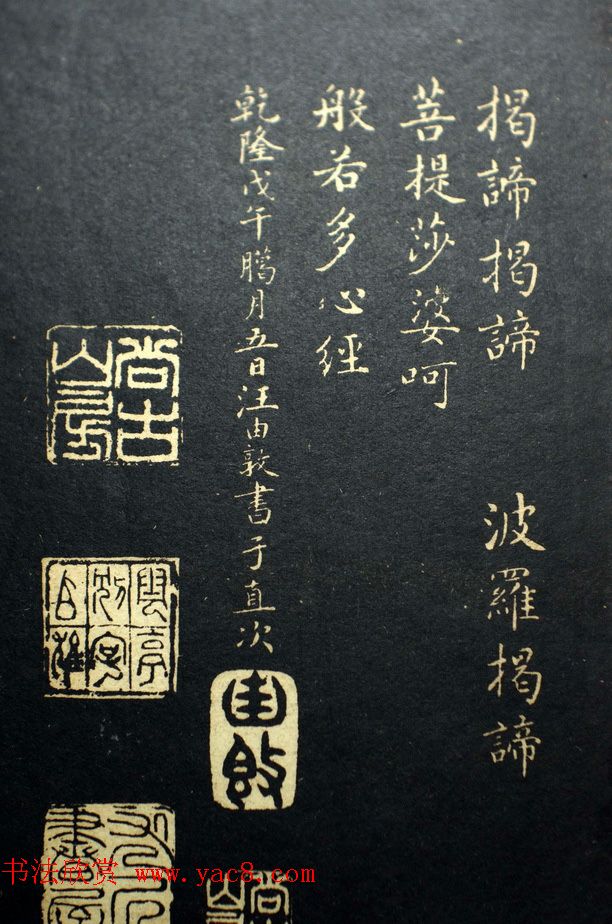 揭諦揭諦 波羅揭諦
菩提莎婆呵
般若多心經
乾隆戊午臈月五日汪由敦書于直次
由敦
尚古山房
书法欣赏 www.yac8.com